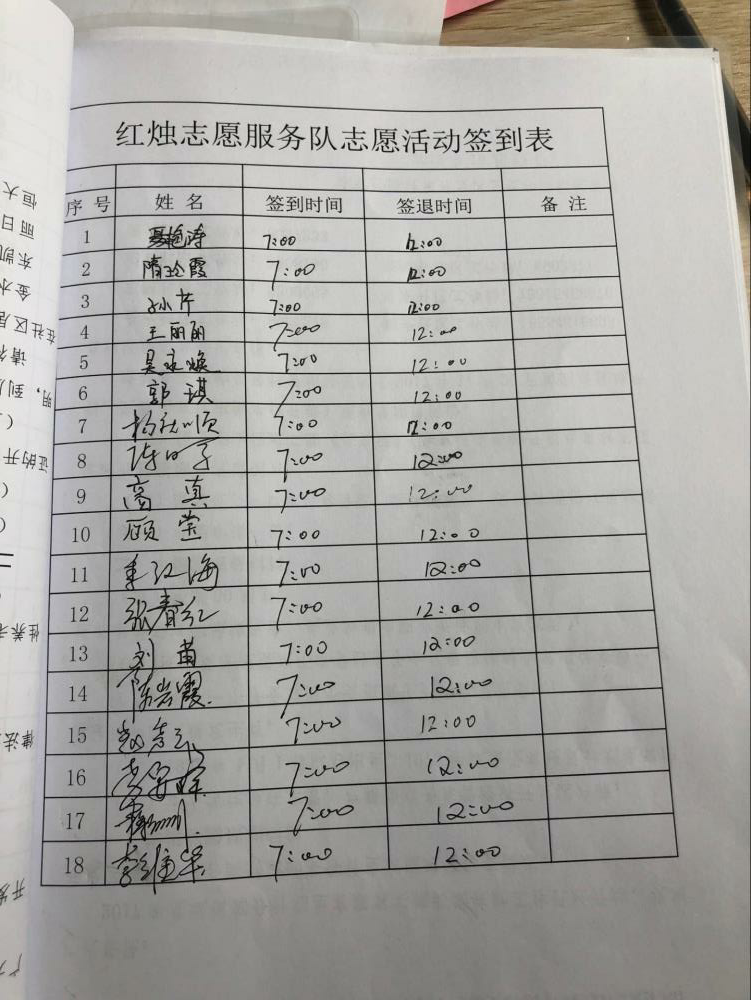 红烛志愿服务队志愿活动签到表
序号 姓名 签到时间 签退时间 备注
1 7:00 12:00
2 隋玲霞 7:00 12:00
3 孙芹 7:00 12:00
4 王丽丽 7:00 12:00
5 吴永焕 7:00 12:00
6 郭琪 7:00 12:00
7 杨秋顺 7:00 12:00
8 7:00 12:00
9 高真 7:00 12:00
10 顾莹 7:00 12:00
11 江海 7:00 12:00
12 张春红 7:00 12:00
13 刘苗 7:00 12:00
14 陈岩霞 7:00 12:00
15 7:00 12:00
16 7:00 12:00
17 7:00 12:00
18 7:00 12:00
恒大
丽日
东凯
金水
在社区居
请
明,到
证的开
性养老
律法
开发